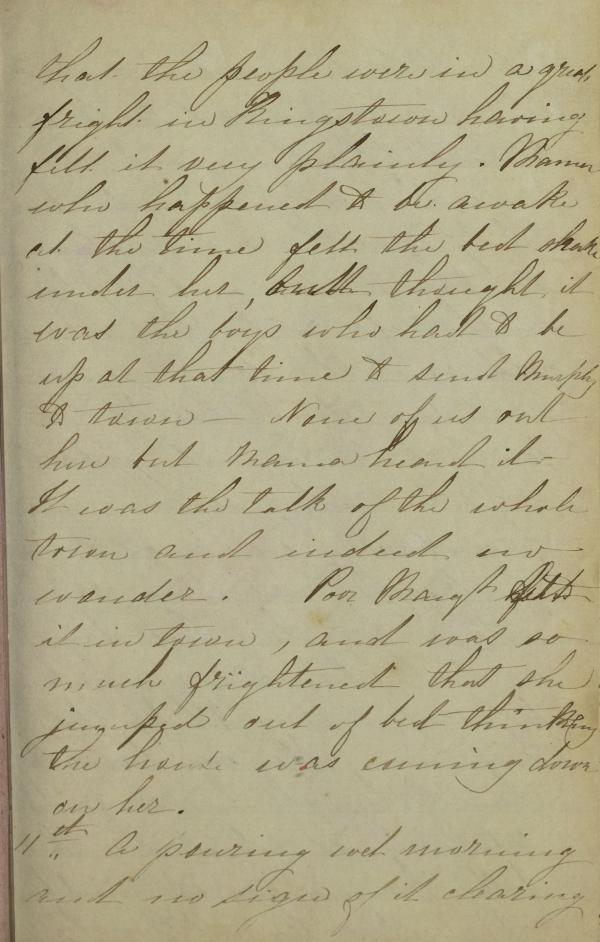 that the people were in a great
fright in Kingstown having
felt it very plainly. Mama
who happened to be awake
at the time felt the bed shake
under her, but thought it
was the boys who had to be
up at that time to send Murphy
to town — None of us out
here but Mama heard it —
It was the talk of the whole
town and indeed no
wonder. Poor Margt felt
it in town, and was so
much frightened that she
jumped out of bed thinking
the house was coming down
on her.
11th A pouring wet morning
and no sign of it clearing